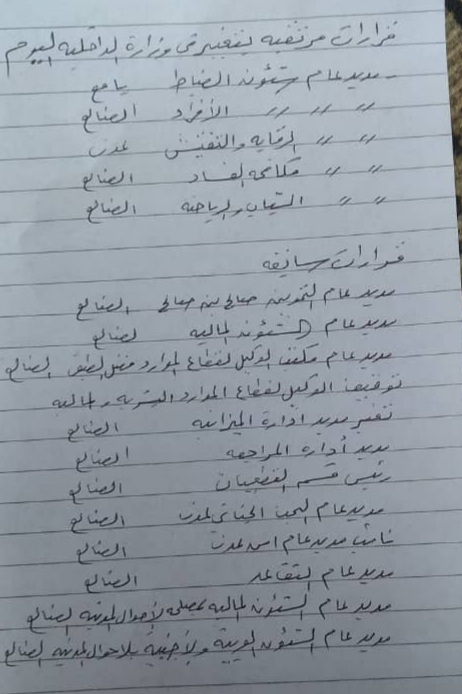 قرارات مرتقبه لتغيير في وزارة الداخليه اليوم
- مديرعام شئون الضباط يافع
〃 〃 〃 الأفراد الضالع
〃 〃 الرقابه والتفتيش لعدن
〃 〃 مكافحه الفساد الضالع
〃 〃 الشباب والرياضه الضالع
قرارات سابقه
مديرعام التموين صالح بن صالح الضالع
مديرعام الشئون الماليه الضالع
مديرعام مكتب الوكيل لقطاع الموارد الضالع
توقيف الوكيل لقطاع الموارد البشريه والماليه
تغيير مدير ادارة الميزانيه الضالع
مدير أداره المراجعه الضالع
رئيس قسم الضالع
مديرعام البحث الجنائي لعدن الضالع
نائب مديرعام امن عدن الضالع
مديرعام التقاعد الضالع
مديرعام الشئون الماليه بمصلحه الأحوال المدنيه الضالع
مديرعام الشئون العربيه والأجنبيه بالاحوال المدنيه الضالع